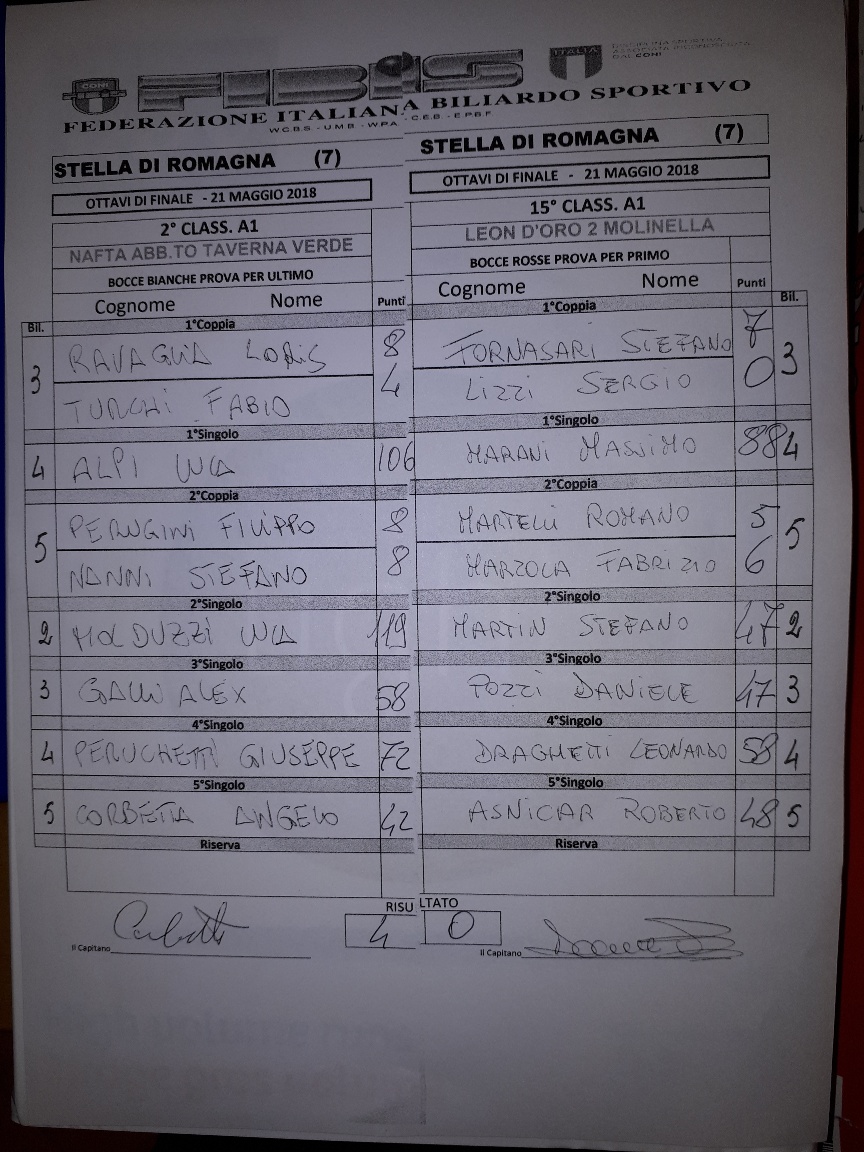 CONI FIBIS ITALIA DISCIPLINA SPORTIVA ASSOCIATA RICONOSCIUTA DAL CONI
FEDERAZIONE ITALIANA BILIARDO SPORTIVO
W.C.B.S - U.M.B - W.P.A - C.E.B - E.P.B.F
STELLA DI ROMAGNA (7) STELLA DI ROMAGNA (7)
OTTAVI DI FINALE - 21 MAGGIO 2018 OTTAVI DI FINALE - 21 MAGGIO 2018
2° CLASS. A1 15° CLASS. A1
NAFTA ABB.TO TAVERNA VERDE LEON D'ORO 2 MOLINELLA
BOCCE BIANCHE PROVA PER ULTIMO BOCCE ROSSE PROVA PER PRIMO
Cognome Nome Punti Cognome Nome Punti
Bil. 1°Coppia 1°Coppia Bil.
3 RAVAGLIA LORIS 8 FORNASARI STEFANO 7 3
TURCHI FABIO 4 LIZZI SERGIO 0
1°Singolo 1°Singolo
4 ALPI LUCA 106 MARANI MASSIMO 88 4
2°Coppia 2°Coppia
5 PERUGINI FILIPPO 8 MARTELLI ROMANO 5 5
NANNI STEFANO 8 MARZOLA FABRIZIO 6
2°Singolo 2°Singolo
2 MOLDUZZI LUCA 119 MARTIN STEFANO 47 2
3°Singolo 3°Singolo
3 GALLI ALEX 58 POZZI DANIELE 47 3
4°Singolo 4°Singolo
4 PERUCHETTI GIUSEPPE 72 DRAGHETTI LEONARDO 58 4
5°Singolo 5°Singolo
5 CORBETTA ANGELO 42 ASNICAR ROBERTO 48 5
Riserva Riserva
RISULTATO
4 0
Il Capitano Il Capitano